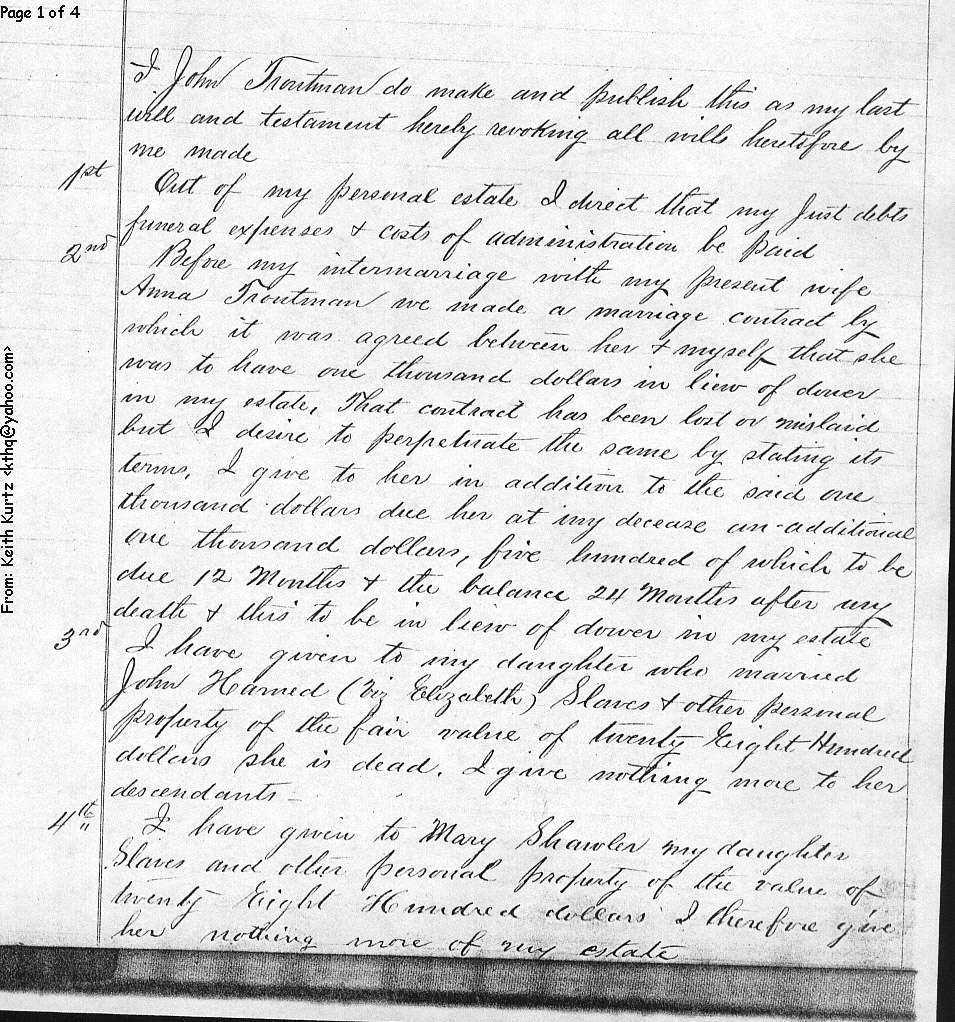 Page 1 of 4
From: Keith Kurtz <kthq@yahoo.com>
I John Troutman do make and publish this as my last
will and testament hereby revoking all wills heretofore by
me made
1st Out of my personal estate I direct that my just debts
funeral expenses & costs of administration be paid
2nd Before my intermarriage with my present wife
Anna Troutman we made a marriage contract by
which it was agreed between her & myself that she
was to have one thousand dollars in liew of dower
in my estate, That contract has been lost or mislaid
but I desire to perpetuate the same by stating its
terms, I give to her in addition to the said one
thousand dollars due her at my decease an additional
one thousand dollars, five hundred of which to be
due 12 Months & the balance 24 Months after my
death & this to be in liew of dower in my estate
3rd I have given to my daughter who married
John Harned (viz Elizabeth) Slaves & other personal
property of the fair value of twenty Eight Hundred
dollars she is dead. I give nothing more to her
descendants -
4th I have given to Mary Shawler my daughter
Slaves and other personal property of the value of
twenty Eight Hundred dollars I therefore give
her nothing more of my estate